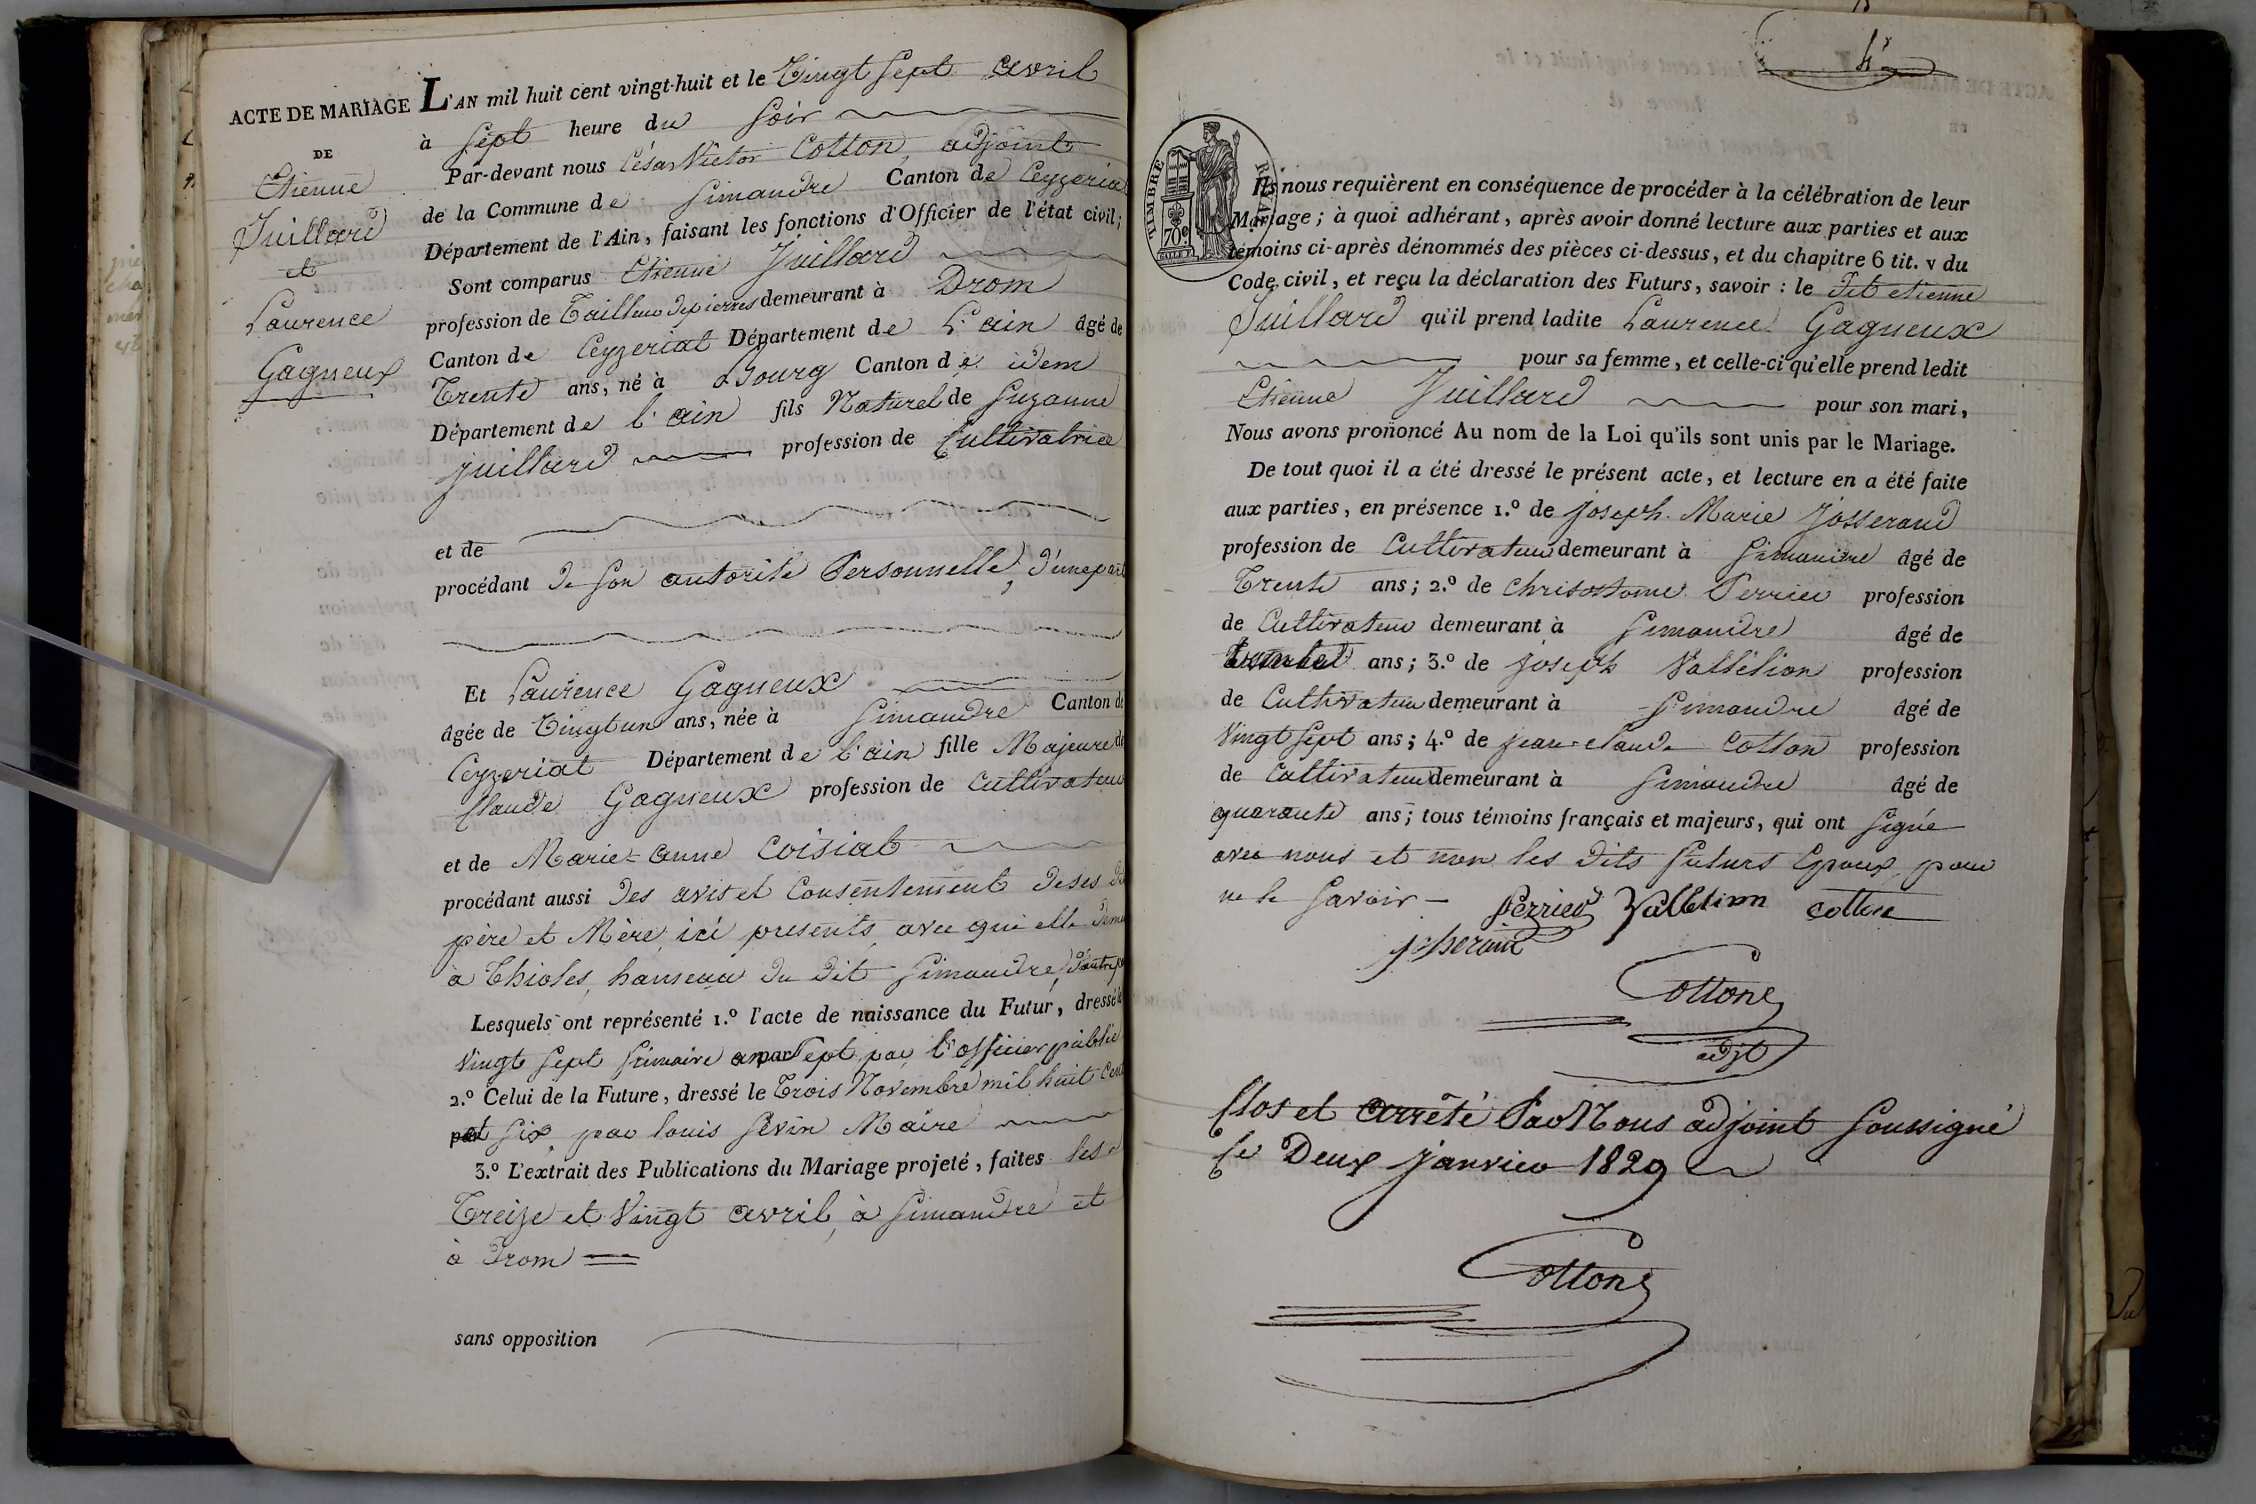 ACTE DE MARIAGE
DE
Etienne
Juillard
et
Laurence
Gagneux
L'AN mil huit cent vingt-huit et le Vingt Sept avril
à Sept heure du Soir
Par-devant nous César Victor Cotton, adjoint
de la Commune de Simandre Canton de Ceyzeriat
Département de l'Ain, faisant les fonctions d'Officier de l'état civil;
Sont comparus Etienne Juillard
profession de Tailleur de pierres demeurant à Drom
Canton de Ceyzeriat Département de L'ain âgé de
Trente ans, né à Bourg Canton de idem
Département de l'ain fils Naturel de Suzanne
juillard profession de Cultivatrice
et de
procédant de son autorité Personnelle, d'une part
Et Laurence Gagneux
âgée de Vingt un ans, née à Simandre Canton de
Ceyzeriat Département de l'ain fille Majeure de
Claude Gagneux profession de Cultivateur
et de Marie-anne Coisiat
procédant aussi des avis et Consentement de ses
père et Mère, ici presents, avec qui elle
à Thioles, hameau du dit Simandre, d'autre
Lesquels ont représenté 1.º l'acte de naissance du Futur, dressé le
Vingt Sept frimaire an Sept par l'officier public
2.º Celui de la Future, dressé le Trois Novembre mil huit Cent
Six, par louis Sevin Maire
3.º L'extrait des Publications du Mariage projeté, faites les
Treize et Vingt avril, à Simandre et
à Drom
sans opposition
TIMBRE ROYAL
70c
Ils nous requièrent en conséquence de procéder à la célébration de leur
Mariage; à quoi adhérant, après avoir donné lecture aux parties et aux
témoins ci-après dénommés des pièces ci-dessus, et du chapitre 6 tit. v du
Code civil, et reçu la déclaration des Futurs, savoir: le dit etienne
Juillard qu'il prend ladite Laurence Gagneux
pour sa femme, et celle-ci qu'elle prend ledit
Etienne Juillard pour son mari,
Nous avons prononcé Au nom de la Loi qu'ils sont unis par le Mariage.
De tout quoi il a été dressé le présent acte, et lecture en a été faite
aux parties, en présence 1.º de joseph Marie josserand
profession de Cultivateur demeurant à Simandre âgé de
Trente ans; 2.º de Chrisostome Perrier profession
de Cultivateur demeurant à Simandre âgé de
ans; 3.º de joseph Valletion profession
de Cultivateur demeurant à Simandre âgé de
Vingt Sept ans; 4.º de jean-claude Cotton profession
de Cultivateur demeurant à Simandre âgé de
quarante ans; tous témoins français et majeurs, qui ont Signé
avec nous et non les dits futurs Epoux, pour
ne le Savoir - Perrier Valletion Cotton
Cotton
adjt
Clos et arrêté Par Nous adjoint Soussigné
le Deux janvier 1829
Cotton